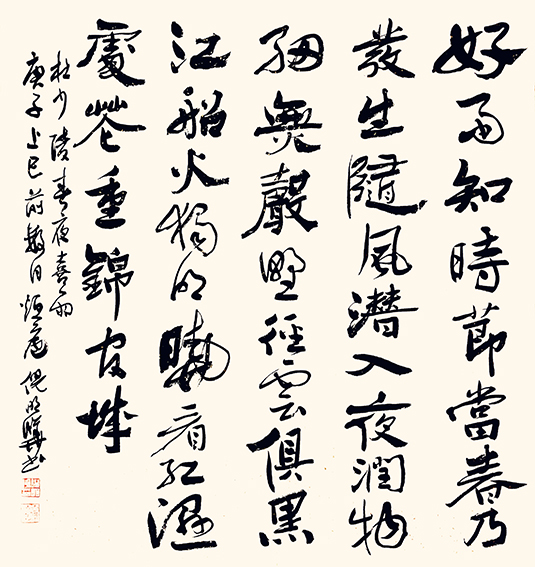 好雨知時節當春乃
發生隨風潛入夜潤物
細無聲野徑雲俱黑
江船火獨明曉看紅濕
處花重錦官城
杜少陵春夜喜雨
庚子上巳前數日恆廬倪明勝书